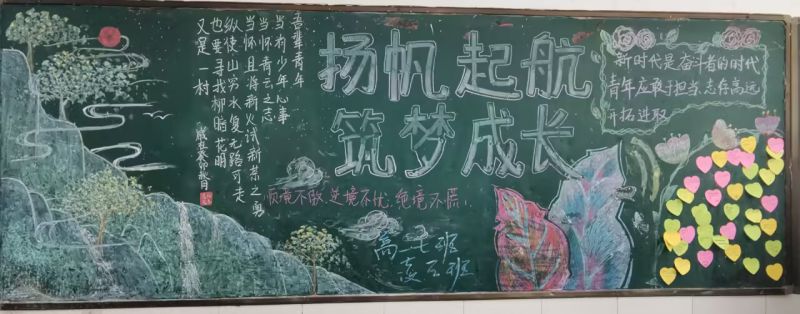 吾辈青年
当有少年心事
当怀青云之志
当怀且将新火试新茶之勇
纵使山穷水复无路可走
也要寻找柳暗花明
又是一村
癸卯秋
扬帆起航
筑梦成长
顺境不傲,逆境不伏,绝境不慌.
高一七班
凌云班
新时代是奋斗者的时代
青年应敢于担当,志存高远
开拓进取